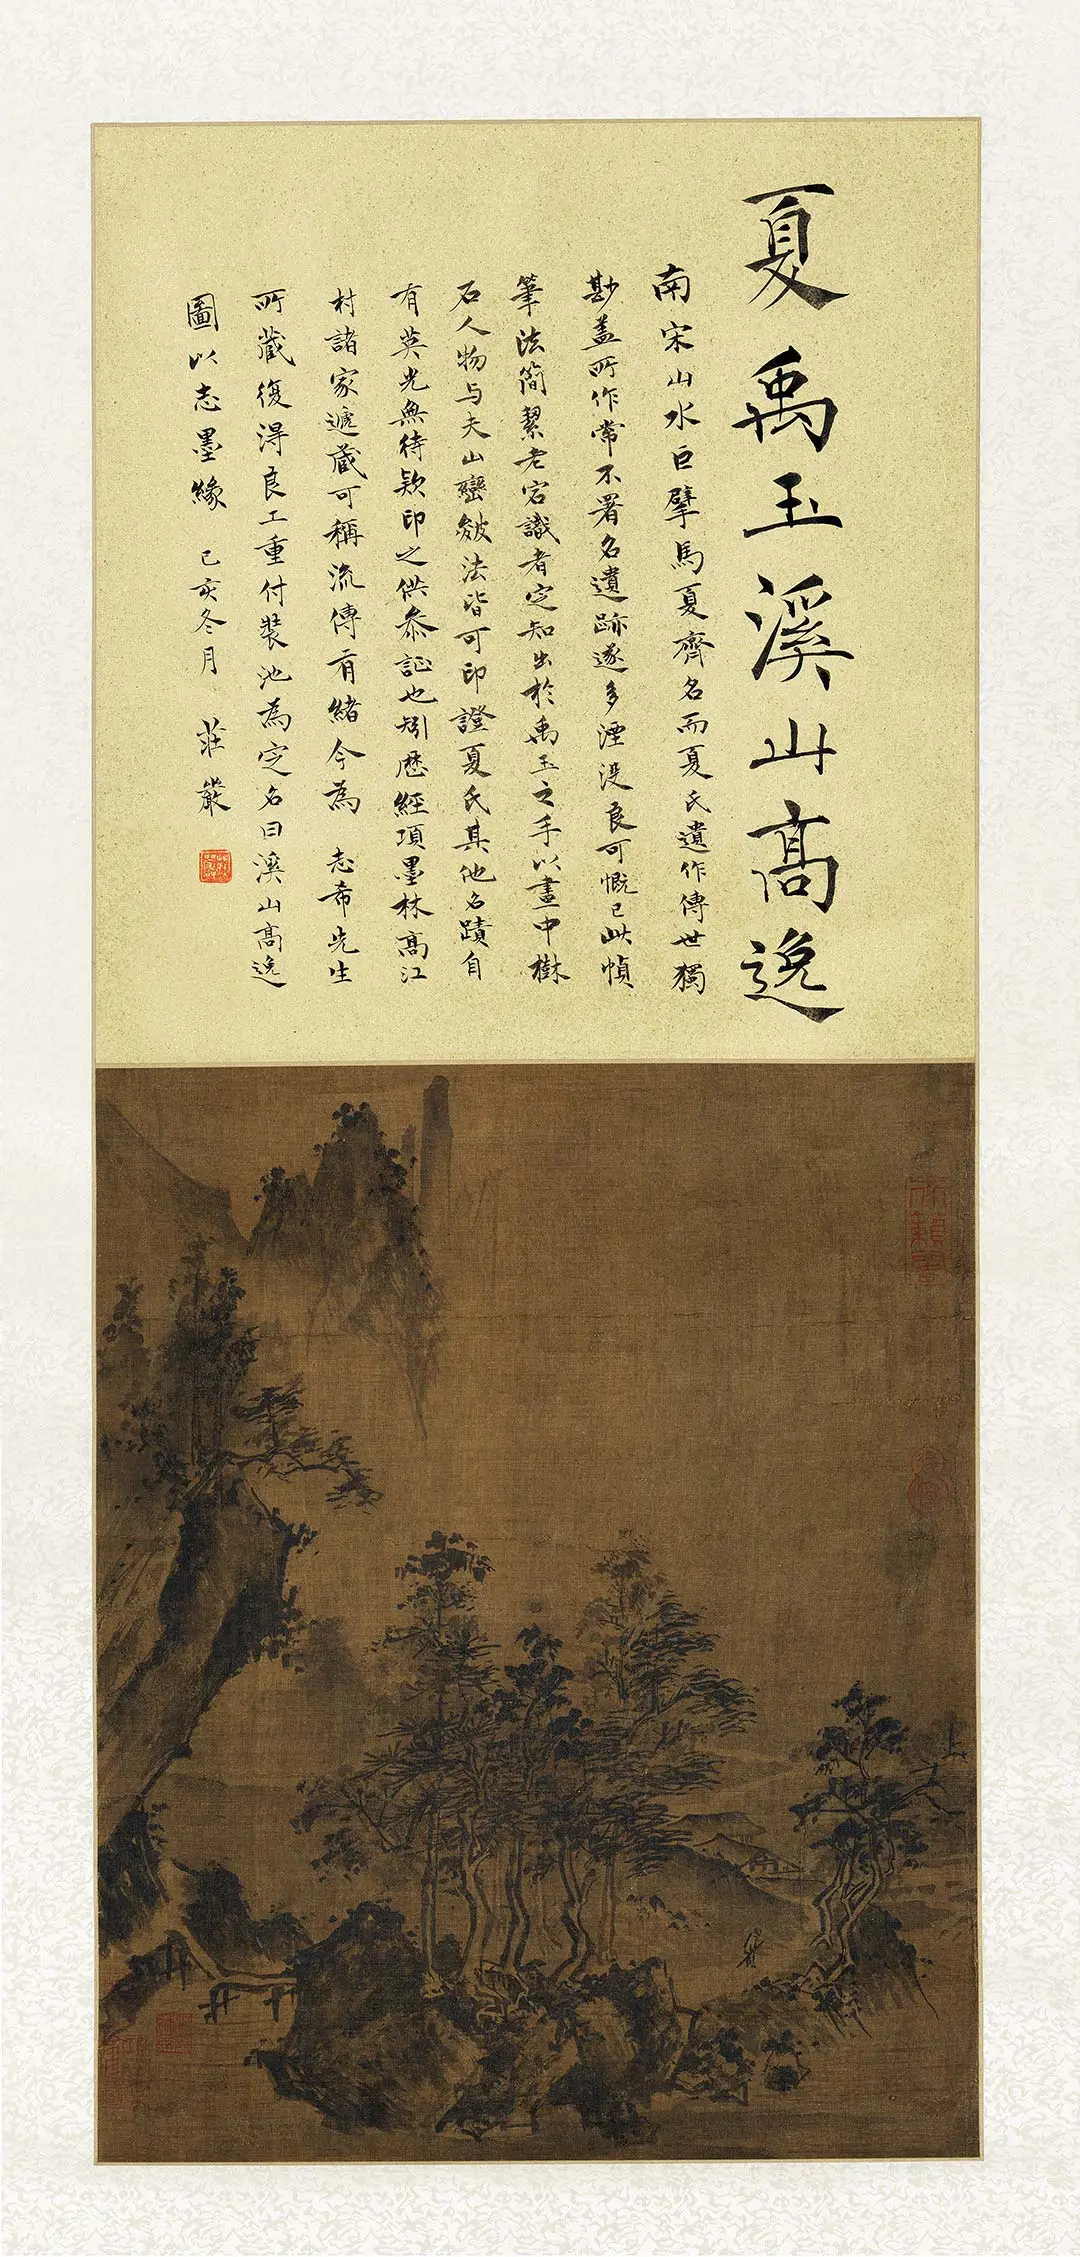 夏禹玉溪山高逸
南宋山水巨擘馬夏齊名而夏氏遺作傳世獨
尠盖所作常不署名遺跡遂多湮没良可慨已此幀
筆法簡絜老宕識者定知出於禹玉之手以畫中樹
石人物与夫山巒皴法皆可印證夏氏其他名蹟自
有英光無待款印之供叅証也矧歴經項墨林高江
村諸家遞蔵可稱流傳有緒今為 志希先生
所蔵復淂良工重付裝池為定名曰溪山高逸
圖以志墨緣 己亥冬月 莊嚴